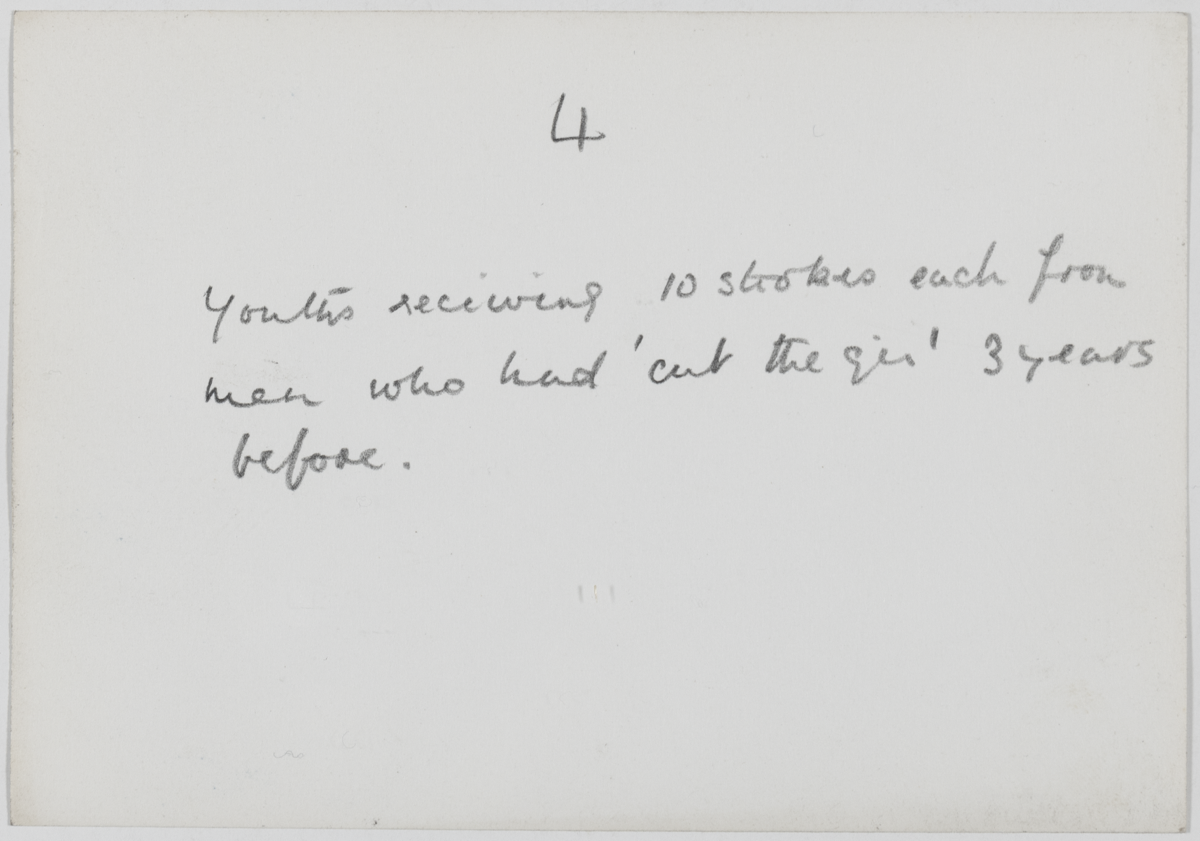 4
Youths reciving 10 strokes each from
men who had 'cut the ' 3 years
before.